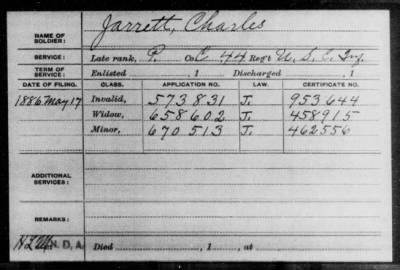 NAME OF SOLDIER: Jarrett, Charles
SERVICE: Late rank, P. Co. C 44 Reg't U. S. C. Inf.
TERM OF SERVICE: Enlisted , 1 Discharged , 1
DATE OF FILING. CLASS. APPLICATION NO. LAW. CERTIFICATE NO.
1886 May 17 Invalid, 573831 J. 953644
Widow, 658602 J. 458915
Minor, 670513 J. 462556
ADDITIONAL SERVICES:
REMARKS:
N. D. A. Died , 1 , at